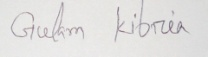 Gulam Kibria